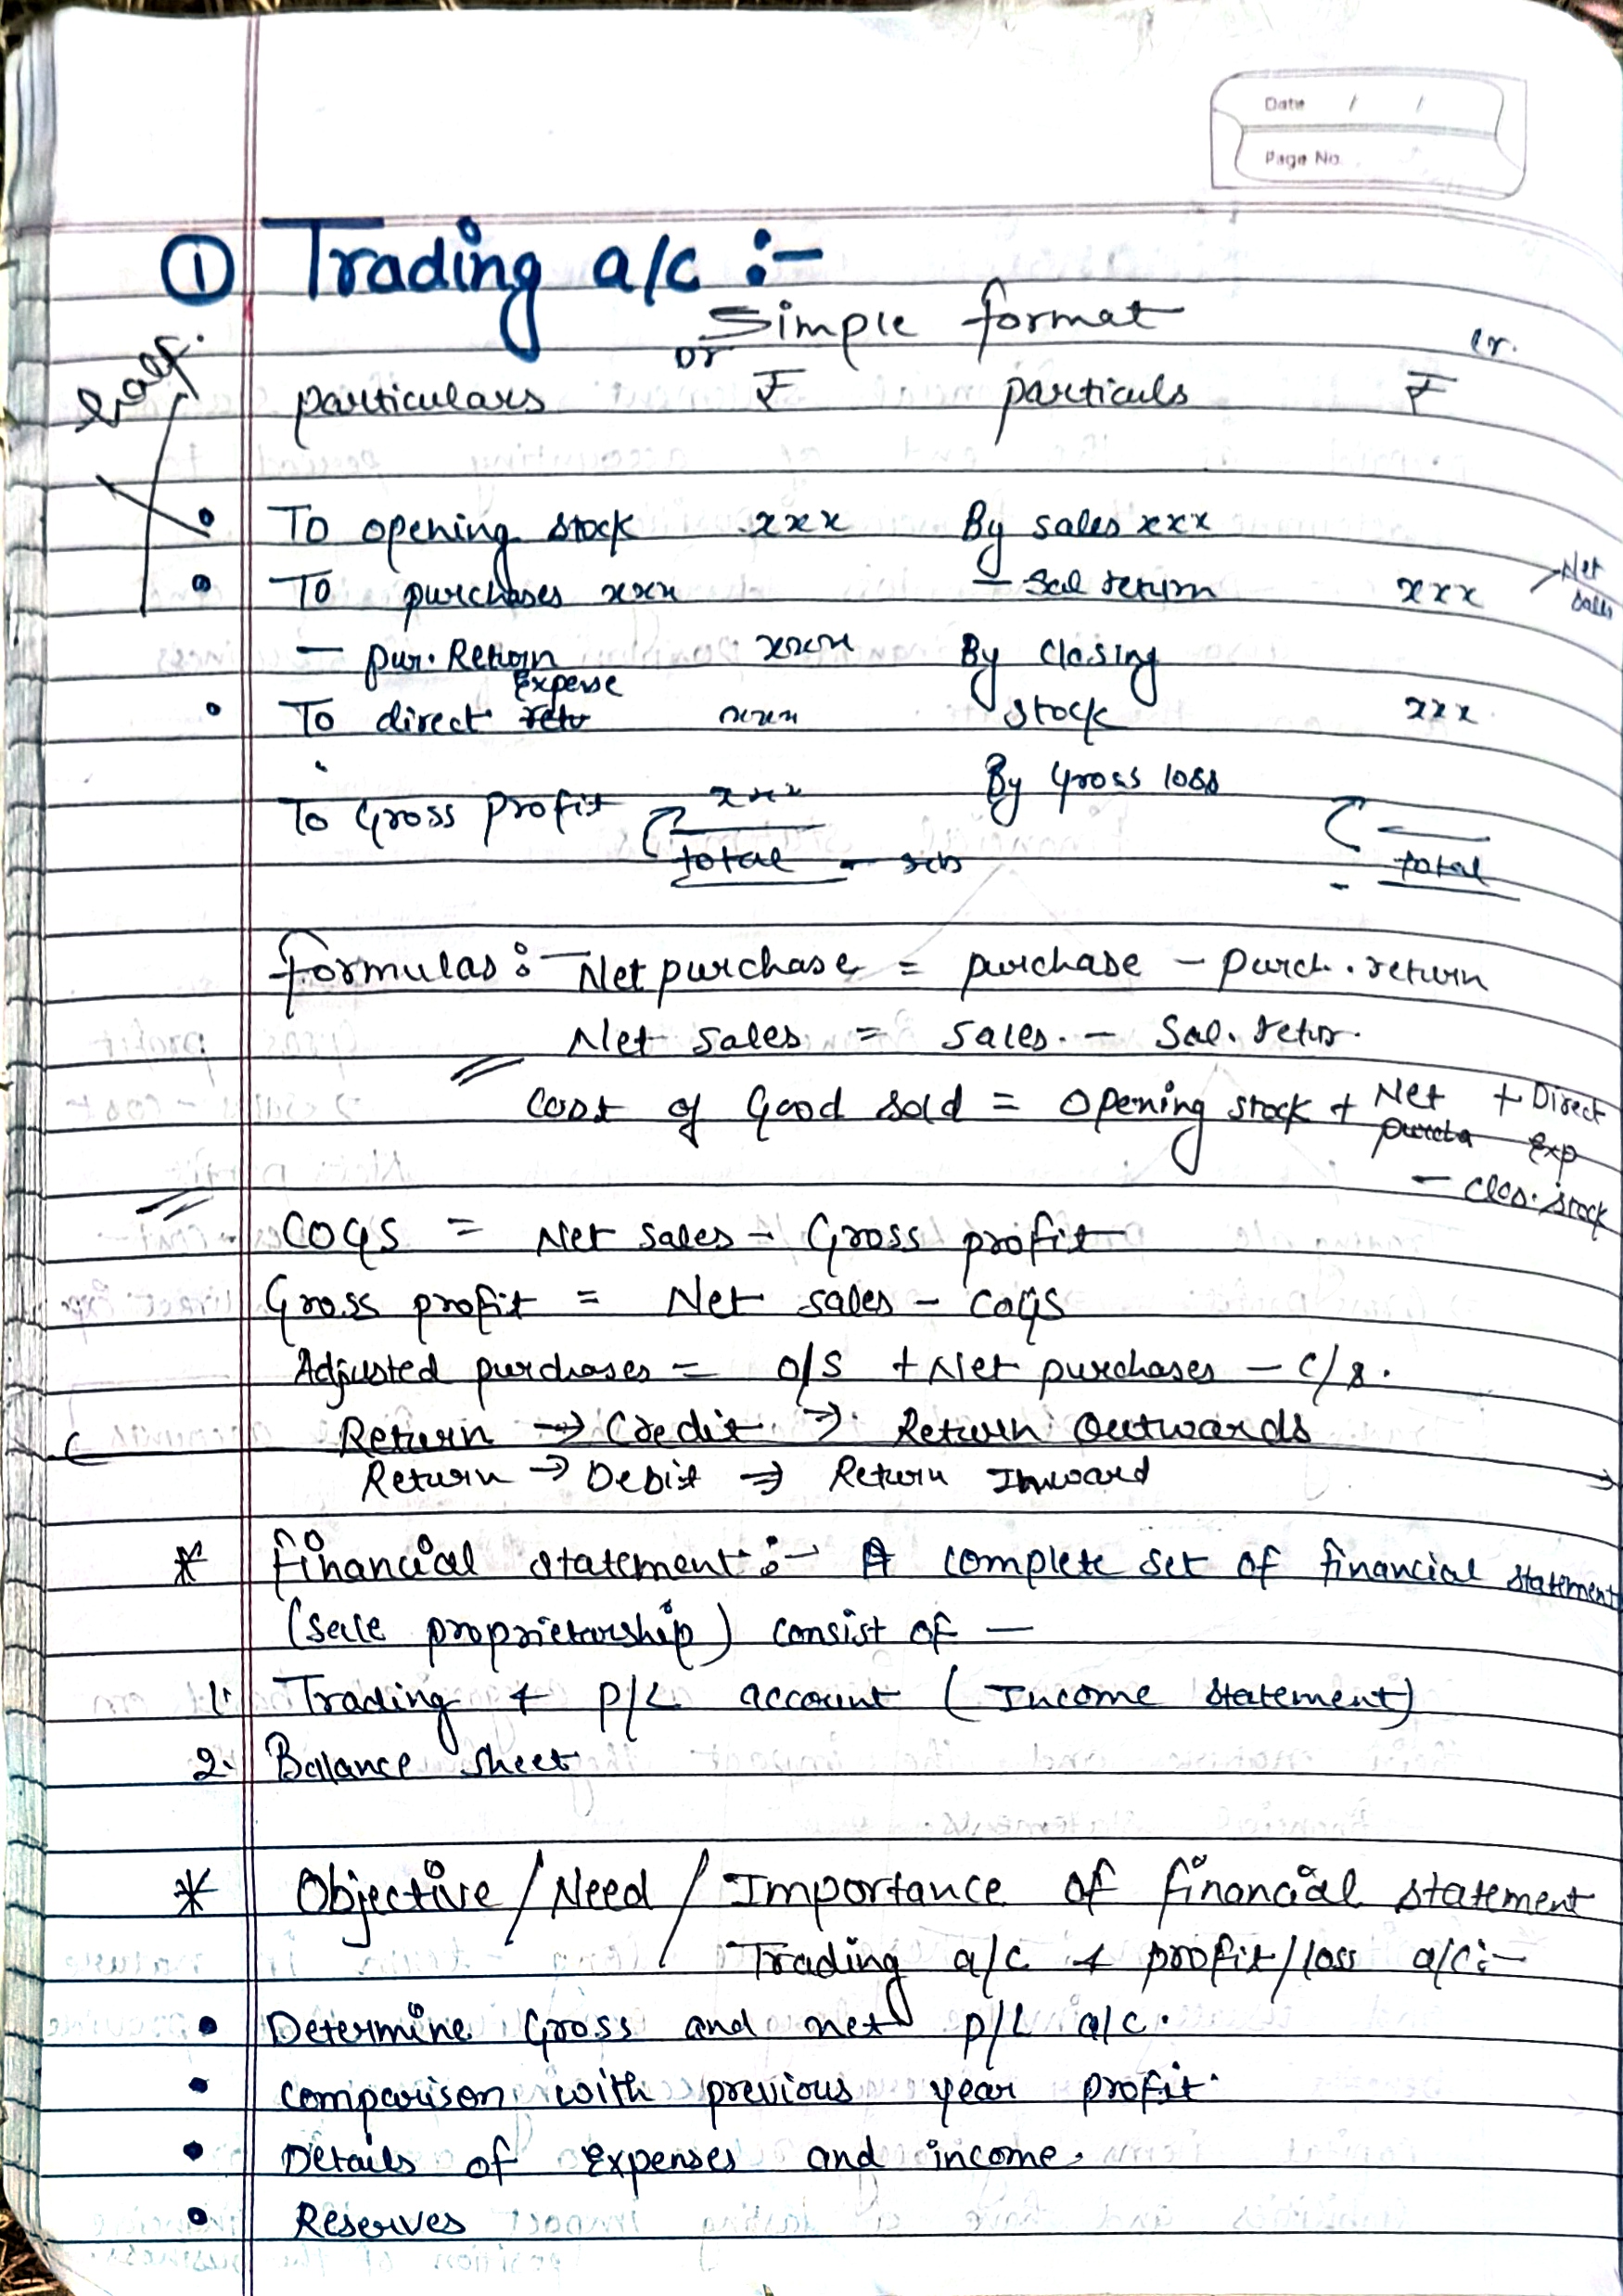 Date / /
Page No.
① Trading a/c :-
Simple format
half.
Dr cr.
particulars ₹ particuls ₹
• To opening stock xxx By sales xxx
• To purchases xxx — Sal return xxx Net sales
— pur. Return xxxx By closing
Expense
• To direct retu xxxx stock xxx
By Gross loss
To Gross profit xxx
total total
formulas :- Net purchase = purchase - purch. return
Net sales = sales. - Sal. retur.
Cost of Good sold = opening stock + Net purcha + Direct Exp
— clos. stock
COGS = Net sales - Gross profit
Gross profit = Net sales - COGS
Adjusted purchases = O/S + Net purchases - C/s.
Return → Credit → Return Outwards
Return → Debit → Return Inward
* financial statement :- A complete set of financial statement
(sole proprietorship) consist of —
1. Trading & P/L account (Income statement)
2. Balance sheet
* Objective / Need / Importance of financial statement
Trading a/c & profit/loss a/c :-
• Determine Gross and net P/L a/c.
• comparison with previous year profit.
• Details of expenses and income.
• Reserves